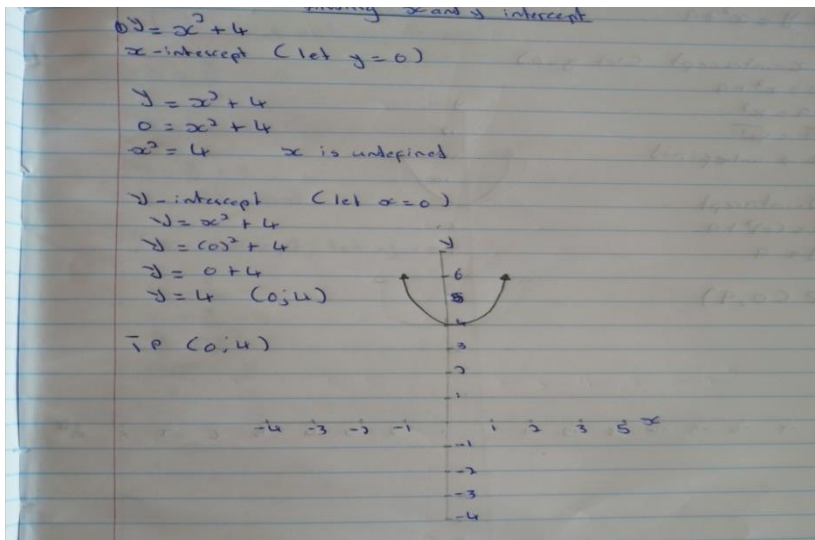 Finding x and y intercept
① y = x² + 4
x-intercept (let y = 0)
y = x² + 4
0 = x² + 4
x² = 4 x is undefined
y-intercept (let x = 0)
y = x² + 4
y = (0)² + 4
y = 0 + 4
y = 4 (0;4)
TP (0;4)
y
6
5
4
3
2
1
-4 -3 -2 -1 1 2 3 5 x
-1
-2
-3
-4